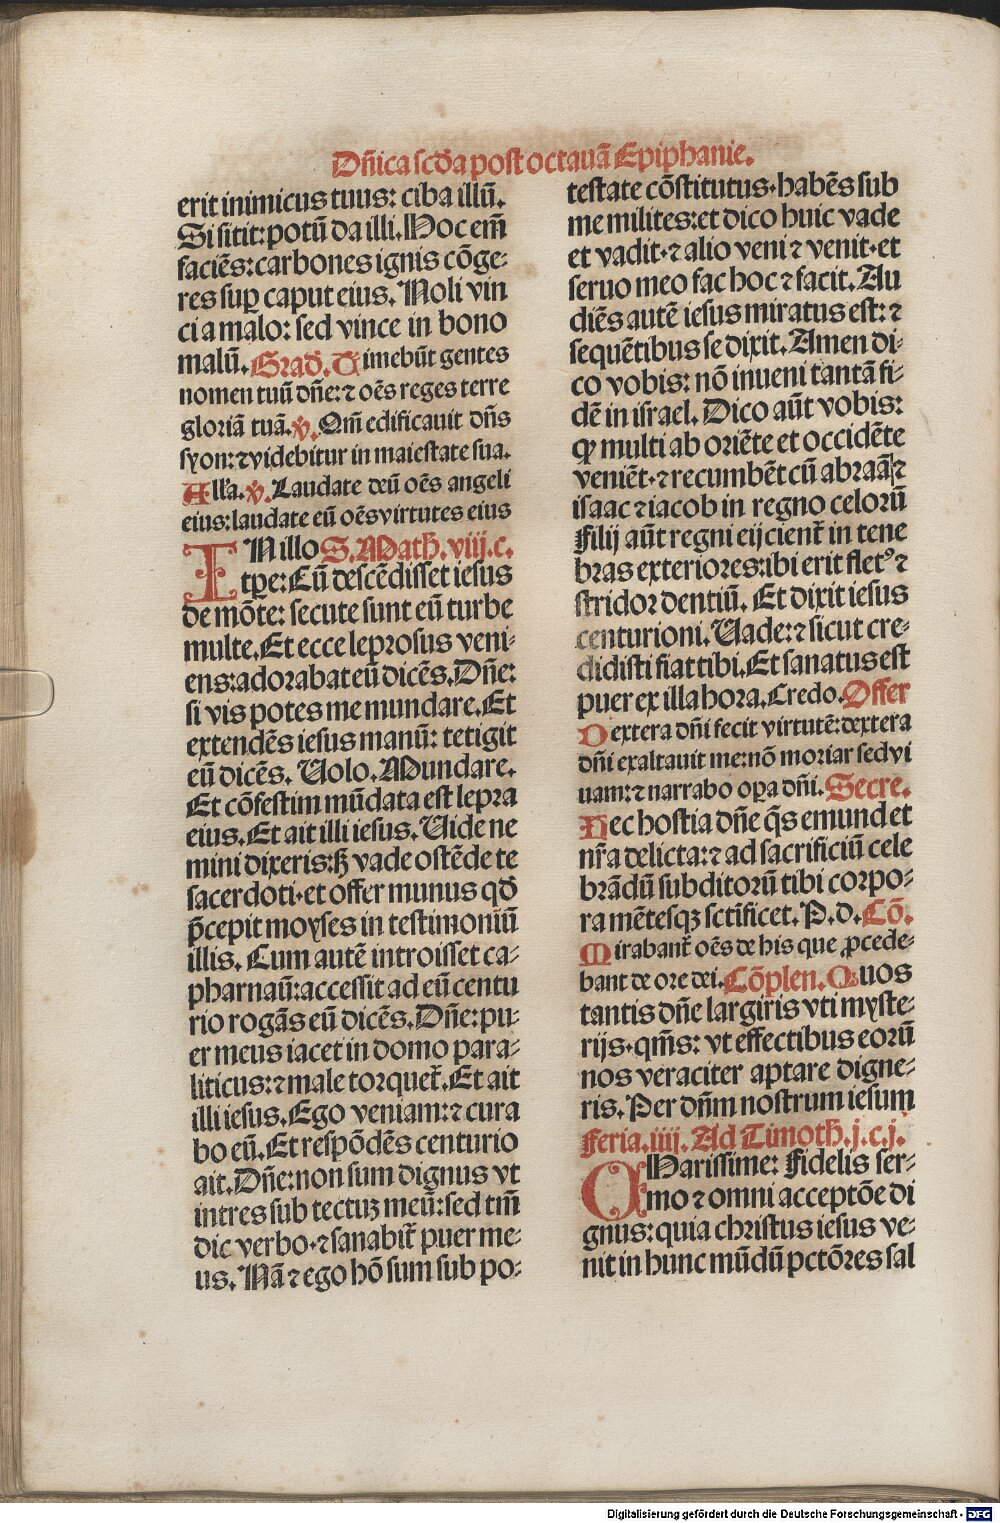 Dñica scďa post octauã Epiphanie.
erit inimicus tuus: ciba illũ.
Si sitit: potũ da illi. Hoc em̃
faciẽs: carbones ignis cõge-
res suꝑ caput eius. Noli vin
ci a malo: sed vince in bono
malũ. Grad̃. Timebũt gentes
nomen tuũ dñe: ⁊ oẽs reges terre
gloriã tuã. ℣. Qm̃ edificauit dñs
syon: ⁊ videbitur in maiestate sua.
All'a. ℣. Laudate deũ oẽs angeli
eius: laudate eũ oẽs virtutes eius
IN illo S. Math. viij. c.
tꝑe: Cũ descẽdisset iesus
de mõte: secute sunt eũ turbe
multe. Et ecce leprosus veni-
ens: adorabat eũ dicẽs. Dñe:
si vis potes me mundare. Et
extendẽs iesus manũ: tetigit
eũ dicẽs. Uolo. Mundare.
Et cõfestim mũdata est lepra
eius. Et ait illi iesus. Uide ne
mini dixeris: sꝫ vade ostẽde te
sacerdoti· et offer munus qď
p̃cepit moyses in testimoniũ
illis. Cum autẽ introisset ca-
pharnaũ: accessit ad eũ centu
rio rogãs eũ dicẽs. Dñe: pu-
er meus iacet in domo para-
liticus: ⁊ male torquet̃. Et ait
illi iesus. Ego veniam: ⁊ cura
bo eũ. Et respõdẽs centurio
ait. Dñe: non sum dignus vt
intres sub tectuꝫ meũ: sed tm̃
dic verbo· ⁊ sanabit̃ puer me-
us. Nã ⁊ ego hõ sum sub po-
testate cõstitutus· habẽs sub
me milites: et dico huic vade
et vadit· ⁊ alio veni ⁊ venit· et
seruo meo fac hoc ⁊ facit. Au
diẽs autẽ iesus miratus est: ⁊
sequẽtibus se dixit. Amen di-
co vobis: nõ inueni tantã fi-
dẽ in israel. Dico aũt vobis:
ꝙ multi ab oriẽte et occidẽte
veniẽt· ⁊ recumbẽt cũ abraã ⁊
isaac ⁊ iacob in regno celorũ
Filij aũt regni eijcient̃ in tene
bras exteriores: ibi erit fletꝰ ⁊
stridor dentiũ. Et dixit iesus
centurioni. Uade: ⁊ sicut cre-
didisti fiat tibi. Et sanatus est
puer ex illa hora. Credo. Offer
Dextera dñi fecit virtutẽ: dextera
dñi exaltauit me: nõ moriar sed vi
uam: ⁊ narrabo oꝑa dñi. Secre.
Hec hostia dñe q̃s emundet
nr̃a delicta: ⁊ ad sacrificiũ cele
brãdũ subditorũ tibi corpo-
ra mẽtesqꝫ sctĩficet. P. d. Cõ.
Mirabant̃ oẽs de his que ꝓcede-
bant de ore dei. Cõplen. Quos
tantis dñe largiris vti myste-
rijs· qm̃s: vt effectibus eorũ
nos veraciter aptare digne-
ris. Per dñm nostrum iesum
Feria. iiij. Ad Timoth. j. c. j.
CHarissime: Fidelis ser-
mo ⁊ omni acceptõe di
gnus: quia christus iesus ve-
nit in hunc mũdũ pctõres sal
Digitalisierung gefördert durch die Deutsche Forschungsgemeinschaft - DFG